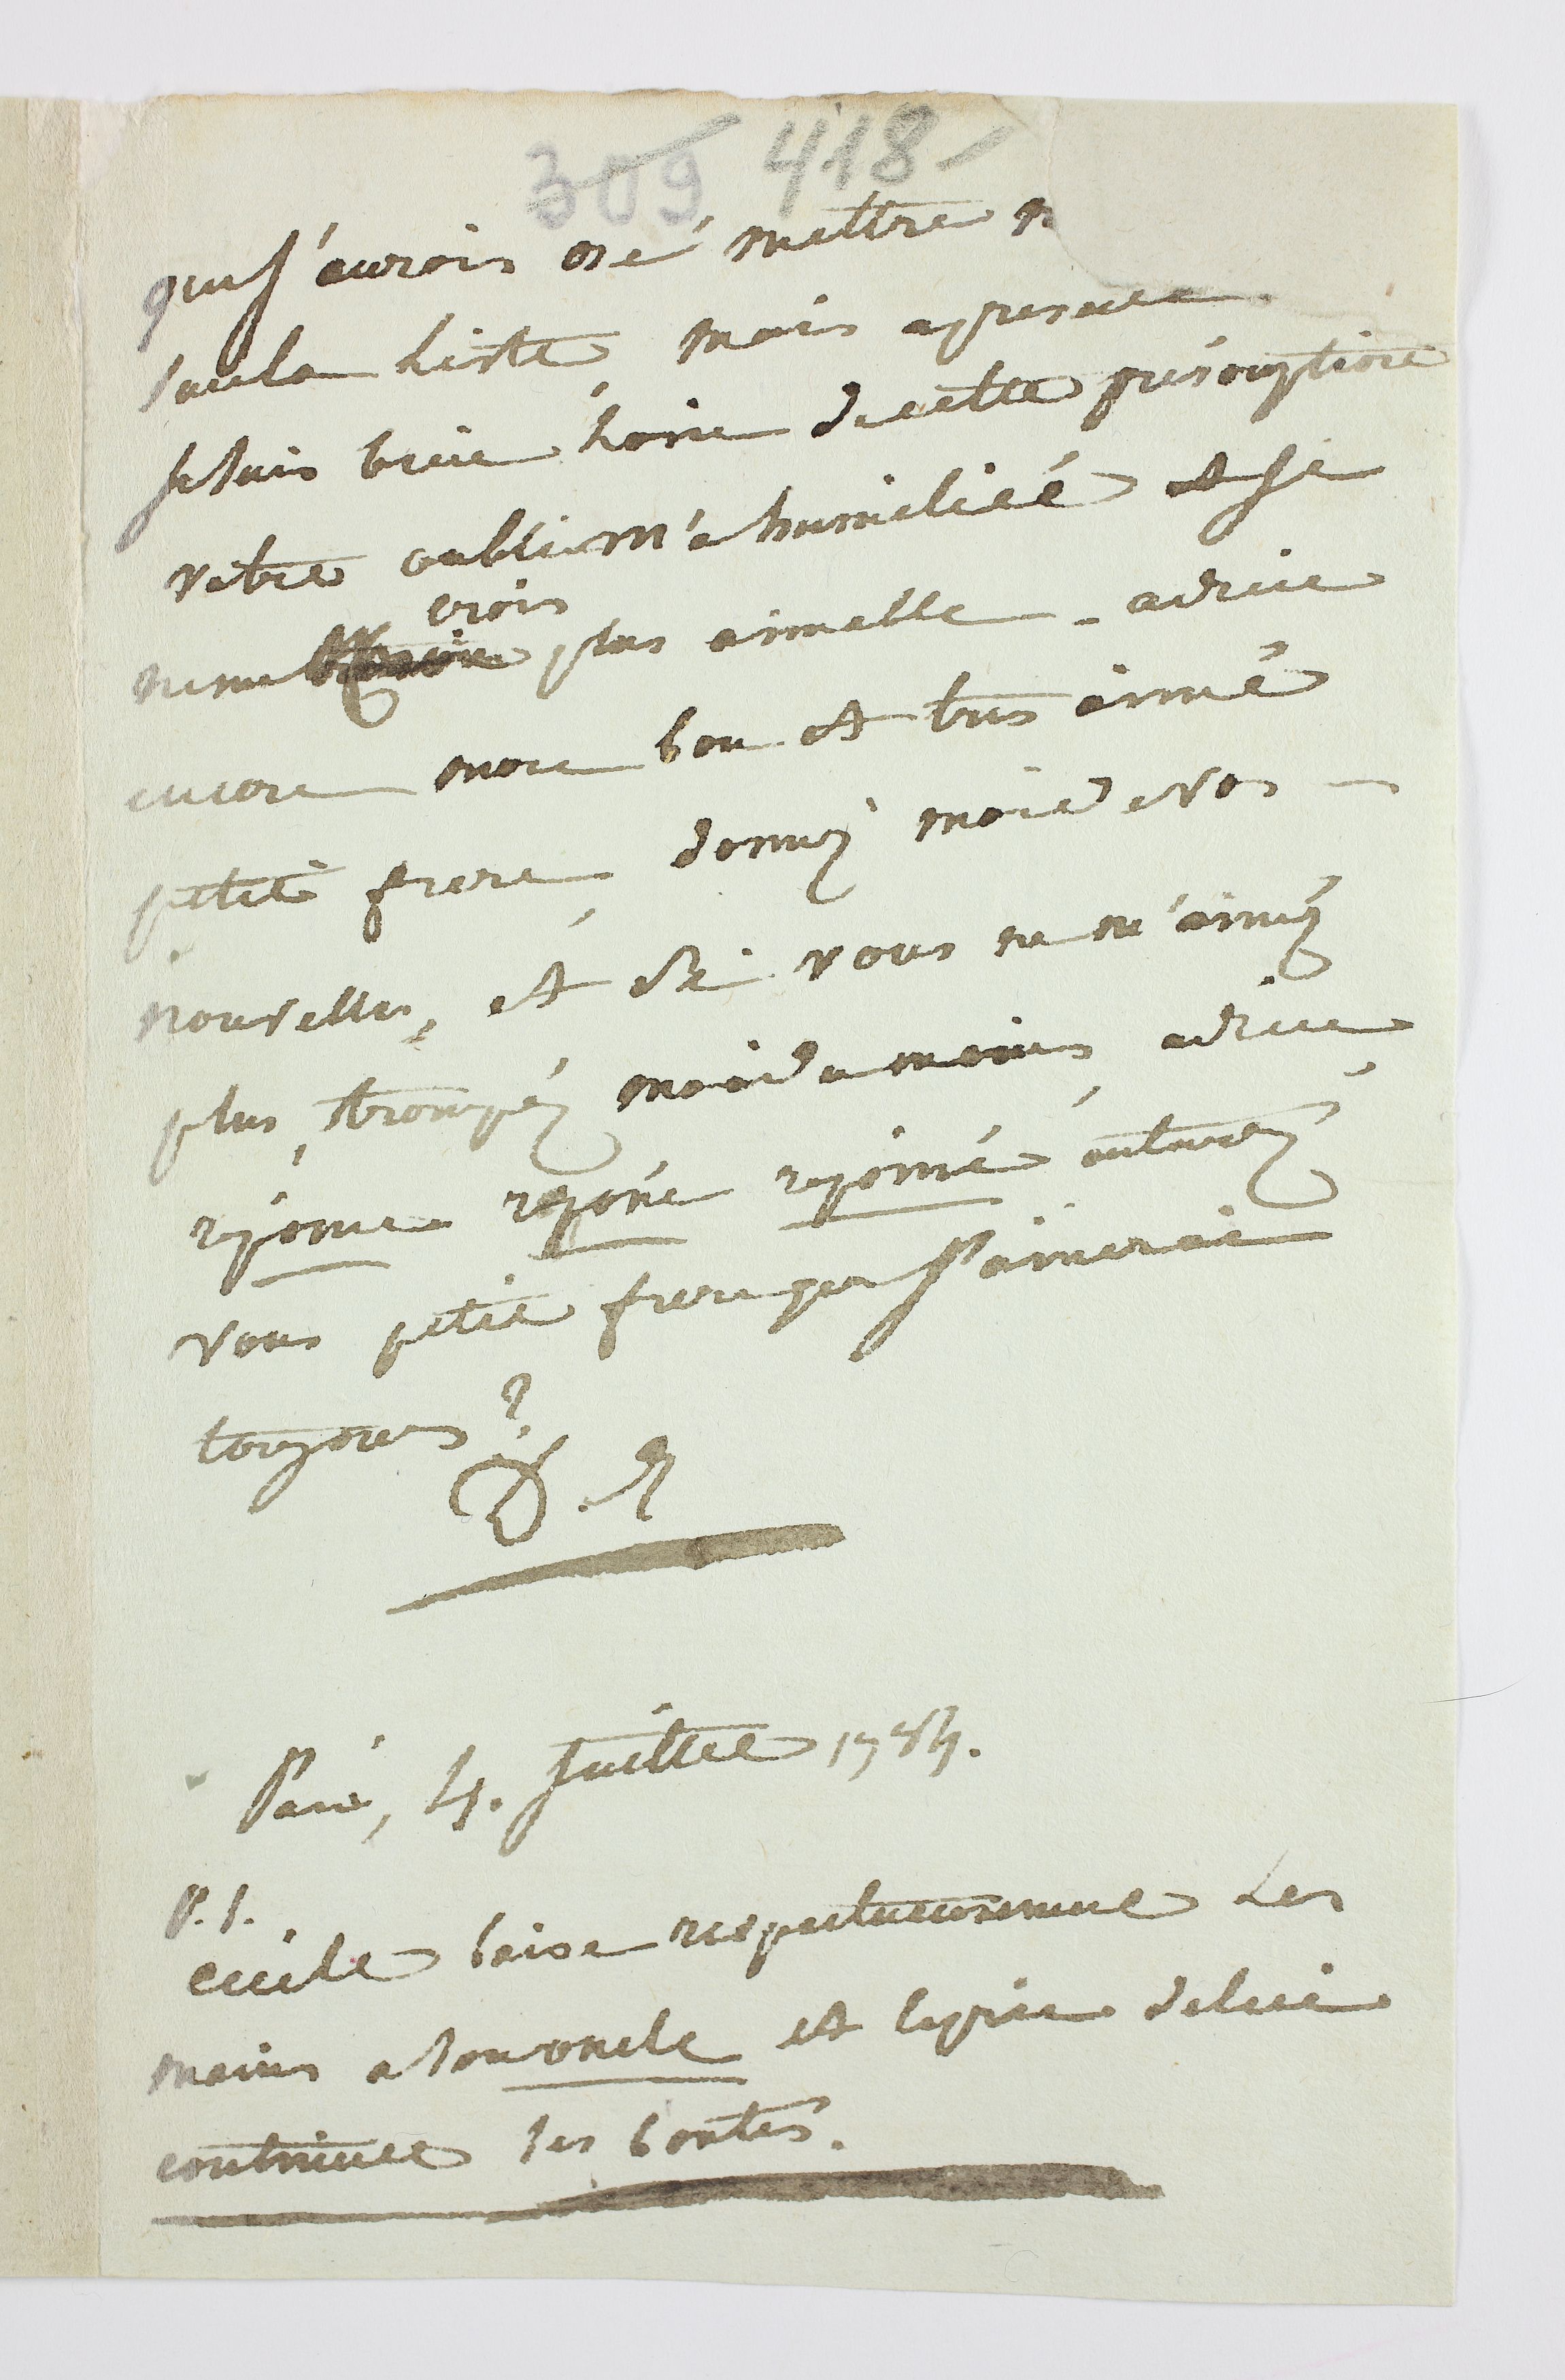 309 418-
que j'aurois osé mettre n
sur la liste, mais apresent
je suis bien loin de cette présomptione
votre oubli m'a humiliée et je
ne me crois plus aimable - adieu
encore mon bon et tres aimé
petit frere donnez moi de vos
nouvelles, et si vous ne m'aimez
plus, trompez moi du moins, adieu
vous petit frere que j'aimerai
toujours?
D. R
Paris, 4. juillet 1784.
P. S.
cecile baise respectueusement les
mains a son oncle et le prie de lui
continuer ses bontés.